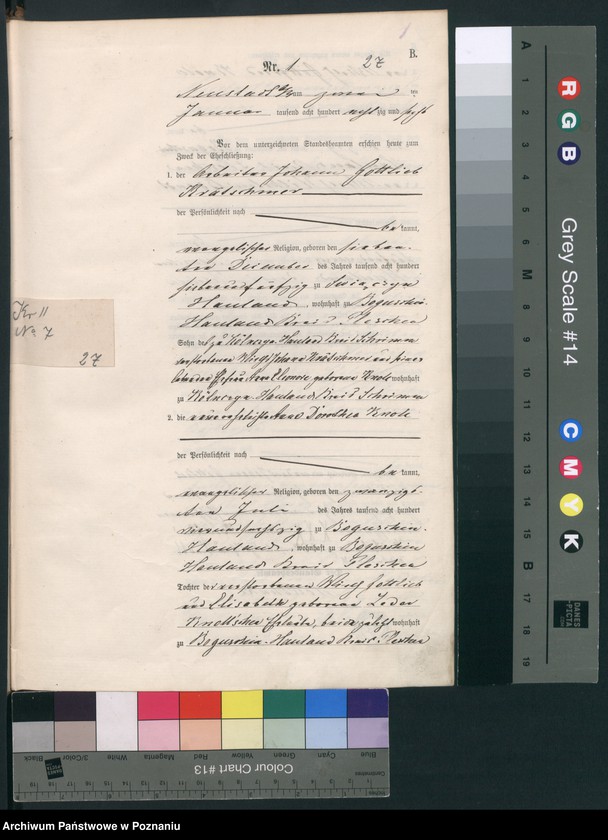 B.
Nr. 1 27
Neustadt a/W am zwei ten
Januar tausend acht hundert acht zig und sechs
Vor dem unterzeichneten Standesbeamten erschien heute zum
Zweck der Eheschließung:
1. der Arbeiter Johann Gottlieb
Krätschmer
der Persönlichkeit nach
be kannt,
evangelischer Religion, geboren den sieben-
ten Dezember des Jahres tausend acht hundert
zu
Hauland, wohnhaft zu Boguschin
Hauland Kreis Pleschen
Sohn des zu Hauland Kreis Schrimm
verstorbenen Wirth Johann Krätschmer und seiner
lebenden Ehefrau Anna geborene Knole wohnhaft
zu Hauland Kreis Schrimm
2. die unverehelichte Anna Dorothea Knole
der Persönlichkeit nach
be kannt,
evangelischer Religion, geboren den zwanzig-
ten Juli des Jahres tausend acht hundert
vierundsechzig zu Boguschin-
Hauland, wohnhaft zu Boguschin
Hauland Kreis Pleschen
Tochter der verstorbenen Wirth Gottlieb
und Elisabeth geborene
Eheleute, beide zuletzt wohnhaft
zu Boguschin-Hauland Kreis Pleschen
Kr 11
No 7
27
Grey Scale #14
R
G
B
C
M
Y
K
A
1
2
3
4
5
6
M
8
9
10
11
12
13
14
15
B
17
18
19
DANES
PICTA
Colour Chart #13
Blue
Cyan
Green
Yellow
Red
Magenta
White
3/Color
Black
Centimetres
Inches
Archiwum Państwowe w Poznaniu